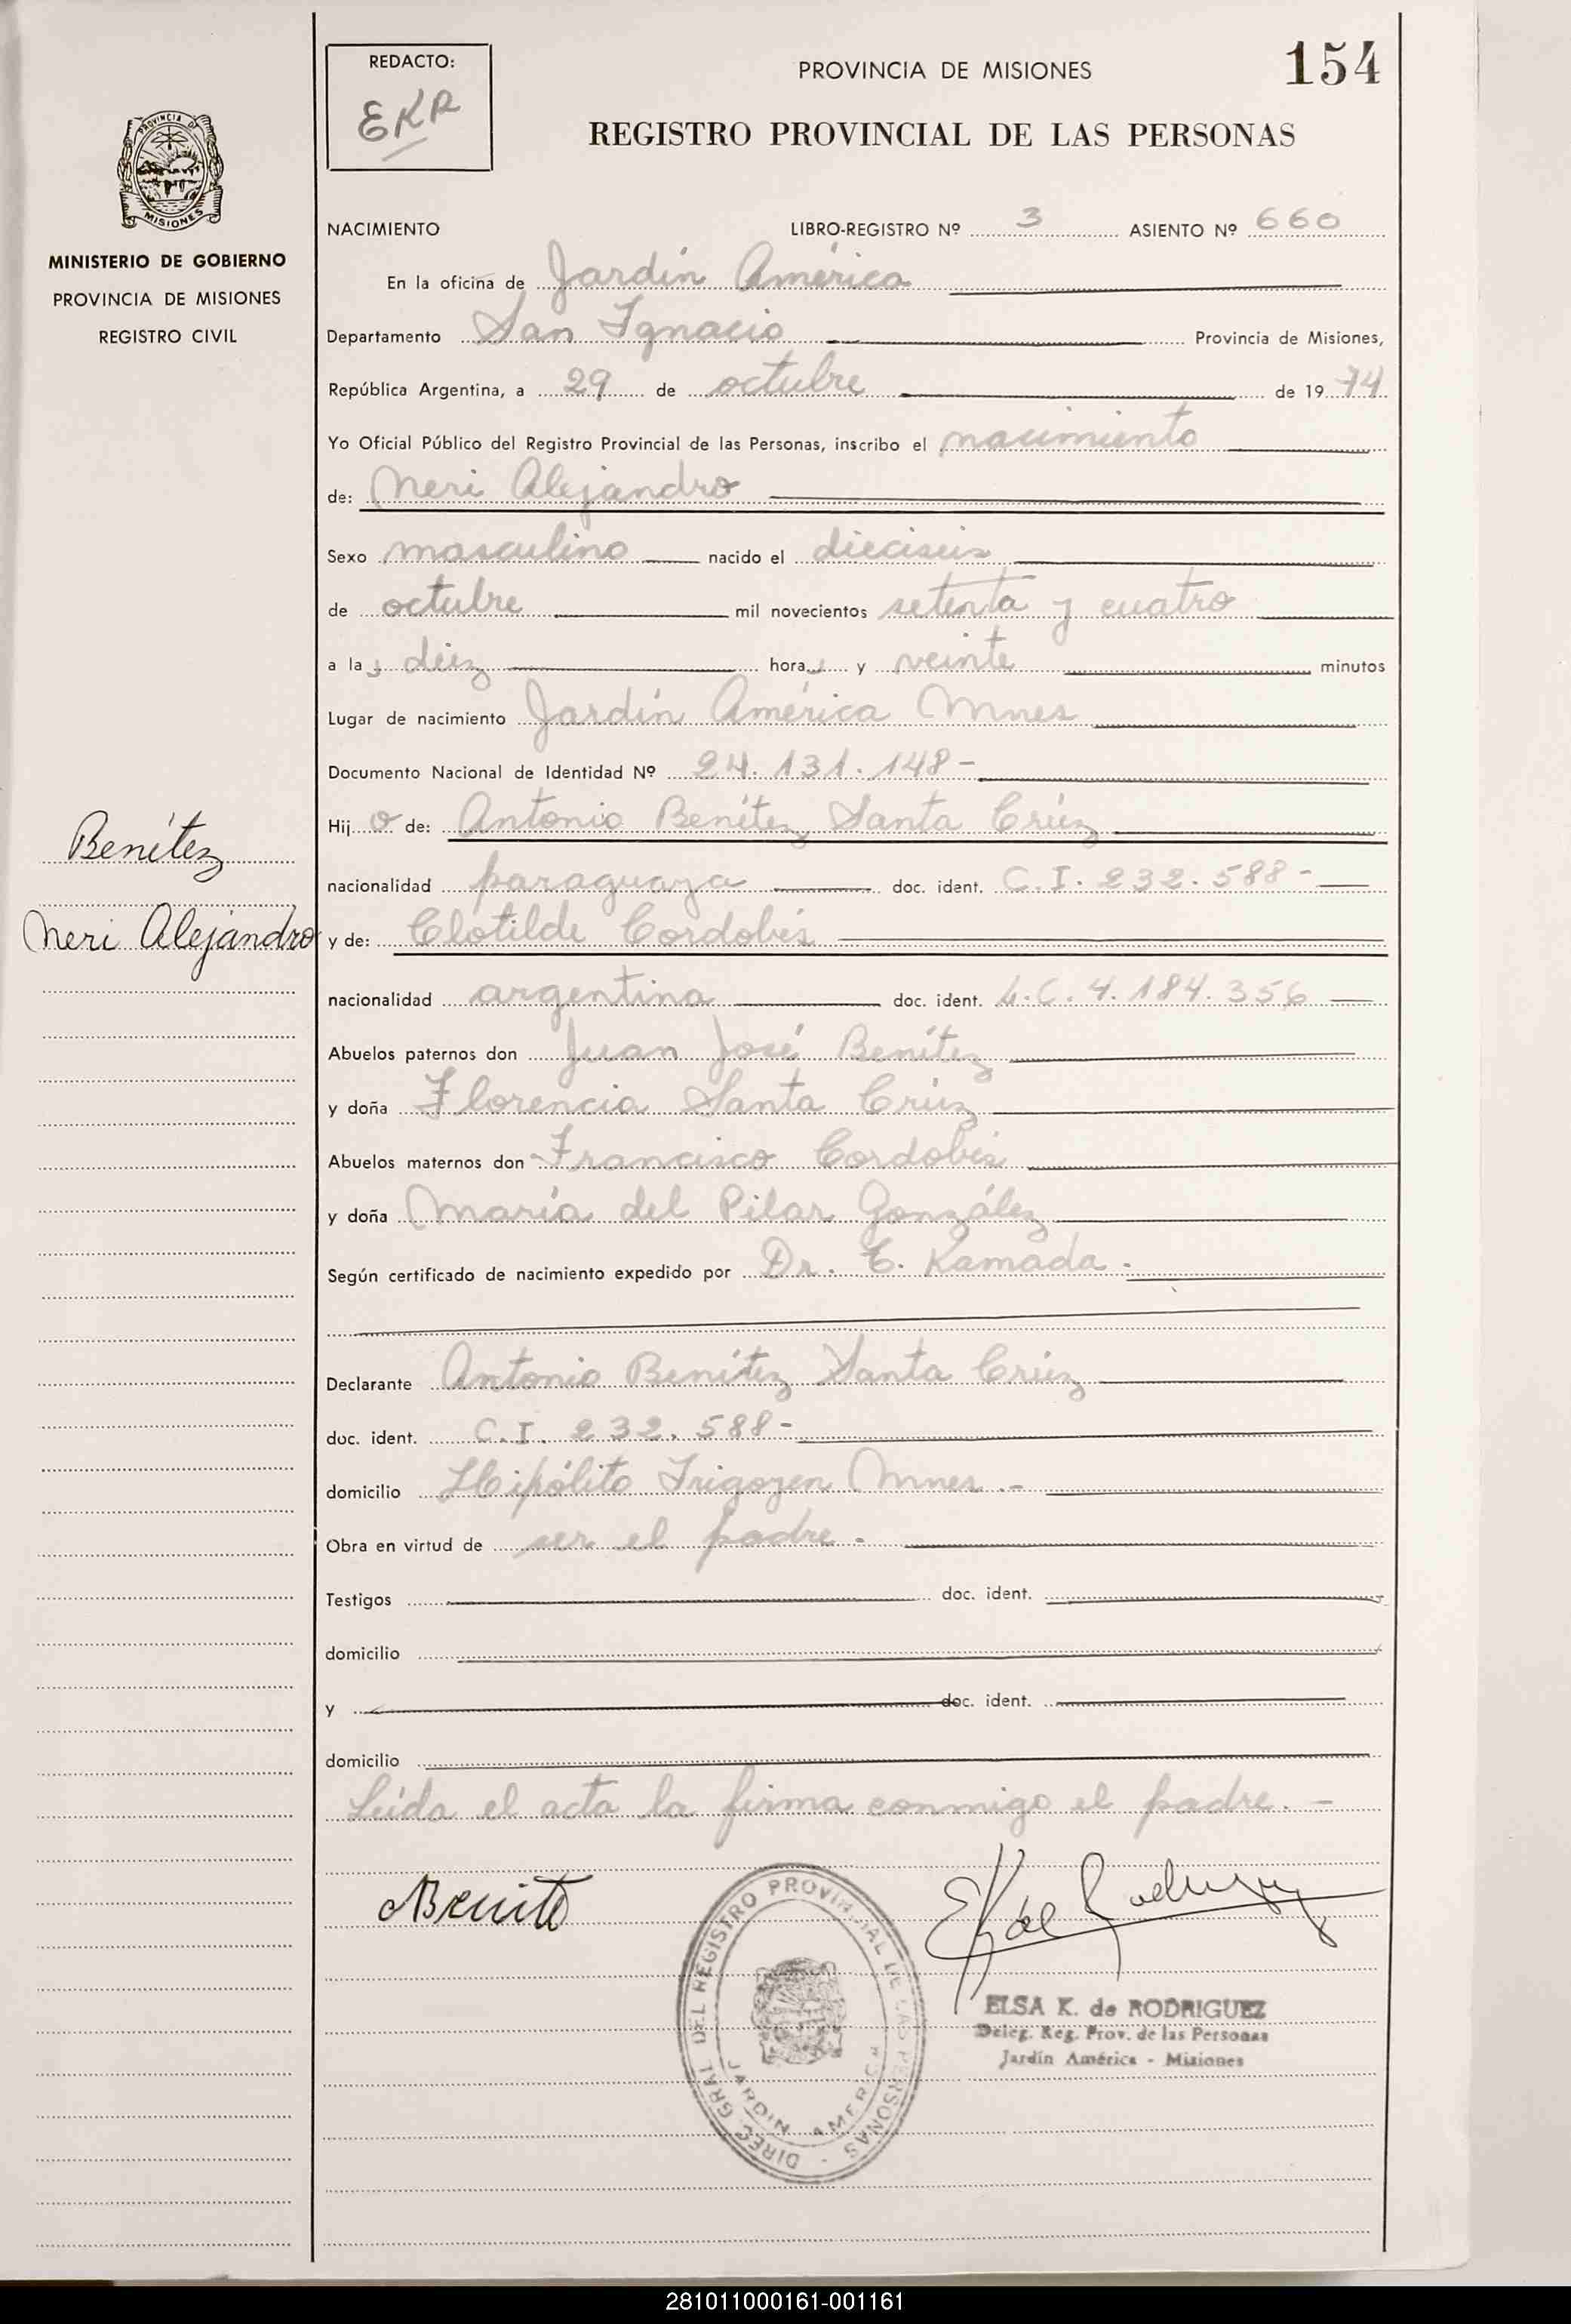 REDACTO:
EKR
PROVINCIA DE MISIONES
154
REGISTRO PROVINCIAL DE LAS PERSONAS
PROVINCIA DE
MISIONES
MINISTERIO DE GOBIERNO
PROVINCIA DE MISIONES
REGISTRO CIVIL
NACIMIENTO LIBRO-REGISTRO Nº 3 ASIENTO Nº 660
En la oficina de Jardín América
Departamento San Ignacio Provincia de Misiones,
República Argentina, a 29 de octubre de 1974
Yo Oficial Público del Registro Provincial de las Personas, inscribo el nacimiento
de: Neri Alejandro
Sexo masculino nacido el dieciseis
de octubre mil novecientos setenta y cuatro
a las diez horas y veinte minutos
Lugar de nacimiento Jardín América Mnes
Documento Nacional de Identidad Nº 24.131.148-
Hijo de: Antonio Benítez Santa Crúz
nacionalidad paraguaya doc. ident. C.I. 232.588-
y de: Clotilde Cordobés
nacionalidad argentina doc. ident. L.C. 4.184.356
Abuelos paternos don Juan José Benítez
y doña Florencia Santa Crúz
Abuelos maternos don Francisco Cordobés
y doña María del Pilar González
Según certificado de nacimiento expedido por Dr. E. Kamada.
Declarante Antonio Benítez Santa Crúz
doc. ident. C.I. 232.588-
domicilio Hipólito Irigoyen Mnes.-
Obra en virtud de ser el padre.
Testigos doc. ident.
domicilio
y doc. ident.
domicilio
Leída el acta la firma conmigo el padre.-
Benítez
Neri Alejandro
ABenite
EKde Rodriguez
DIREC. GRAL DEL REGISTRO PROVINCIAL DE LAS PERSONAS
JARDIN AMERICA
ELSA K. de RODRIGUEZ
Deleg. Reg. Prov. de las Personas
Jardín América - Misiones
281011000161-001161